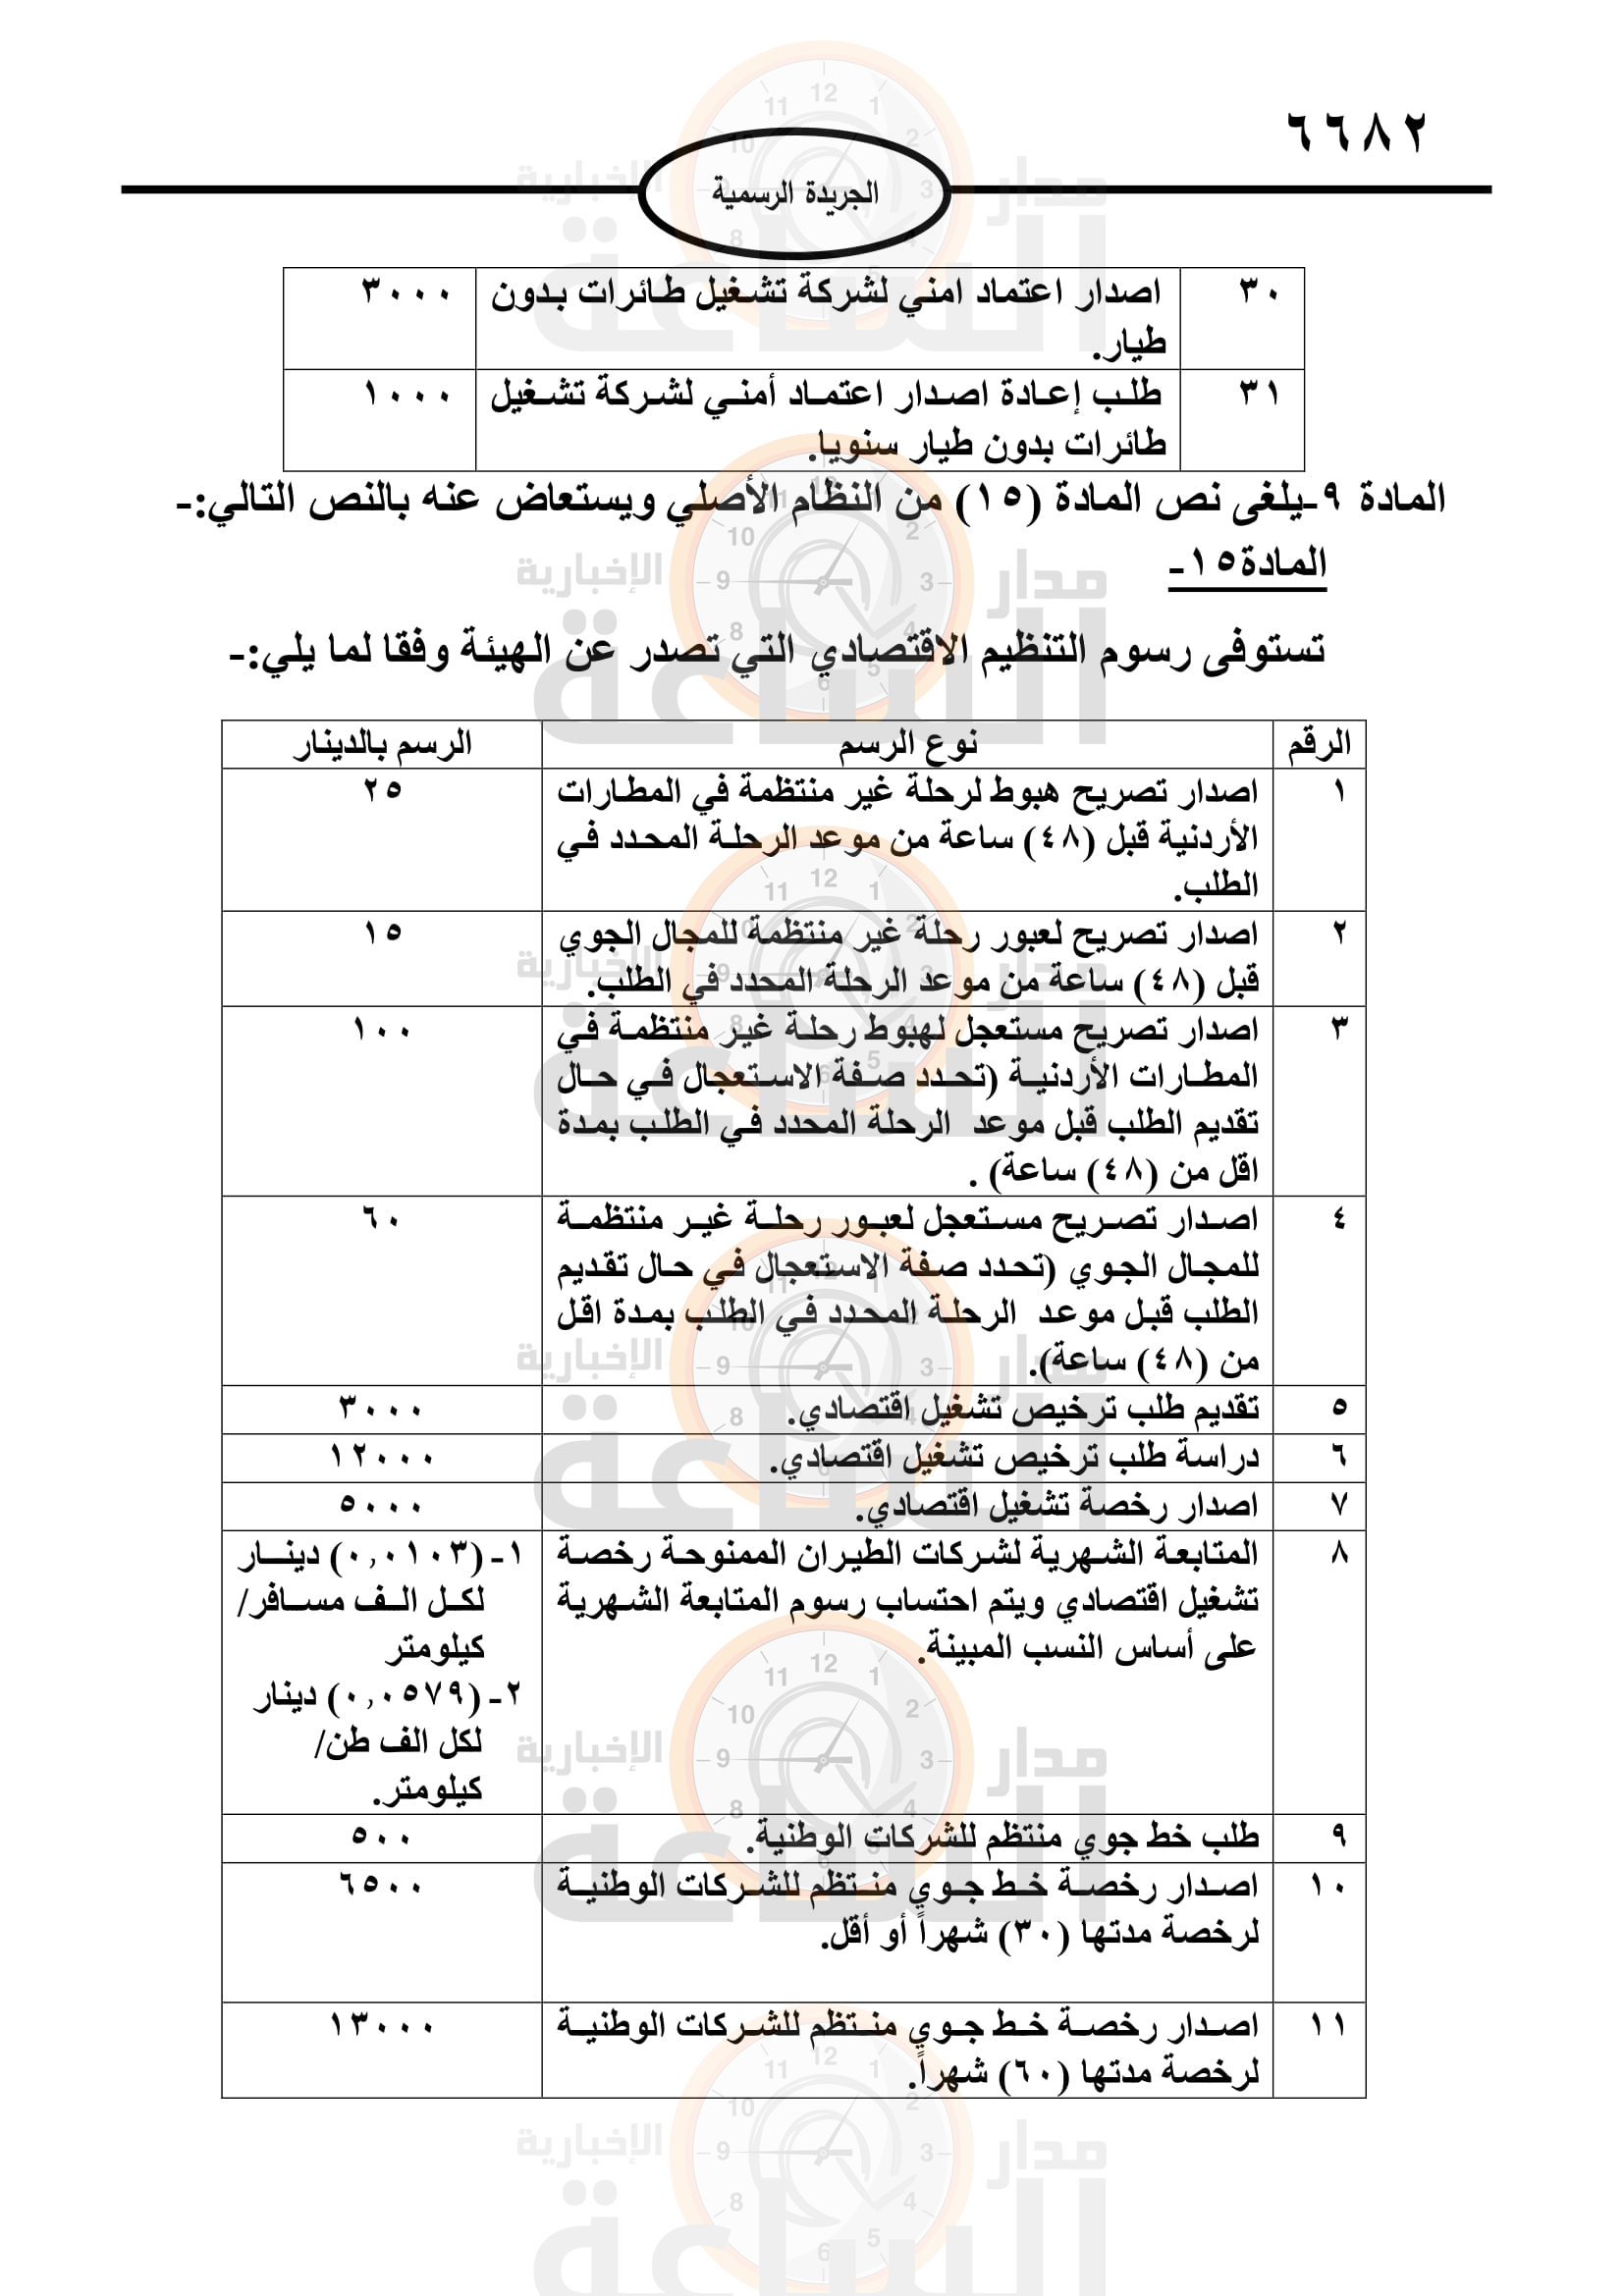 ٦٦٨٢
الجريدة الرسمية
٣٠ اصدار اعتماد امني لشركة تشغيل طائرات بدون ٣٠٠٠
طيار.
٣١ طلب إعادة اصدار اعتماد أمني لشركة تشغيل ١٠٠٠
طائرات بدون طيار سنويا.
المادة ٩-يلغى نص المادة (١٥) من النظام الأصلي ويستعاض عنه بالنص التالي:-
المادة١٥-
تستوفى رسوم التنظيم الاقتصادي التي تصدر عن الهيئة وفقا لما يلي:-
الرقم نوع الرسم الرسم بالدينار
١ اصدار تصريح هبوط لرحلة غير منتظمة في المطارات ٢٥
الأردنية قبل (٤٨) ساعة من موعد الرحلة المحدد في
الطلب.
٢ اصدار تصريح لعبور رحلة غير منتظمة للمجال الجوي ١٥
قبل (٤٨) ساعة من موعد الرحلة المحدد في الطلب.
٣ اصدار تصريح مستعجل لهبوط رحلة غير منتظمة في ١٠٠
المطارات الأردنية (تحدد صفة الاستعجال في حال
تقديم الطلب قبل موعد الرحلة المحدد في الطلب بمدة
اقل من (٤٨) ساعة) .
٤ اصدار تصريح مستعجل لعبور رحلة غير منتظمة ٦٠
للمجال الجوي (تحدد صفة الاستعجال في حال تقديم
الطلب قبل موعد الرحلة المحدد في الطلب بمدة اقل
من (٤٨) ساعة).
٥ تقديم طلب ترخيص تشغيل اقتصادي. ٣٠٠٠
٦ دراسة طلب ترخيص تشغيل اقتصادي. ١٢٠٠٠
٧ اصدار رخصة تشغيل اقتصادي. ٥٠٠٠
٨ المتابعة الشهرية لشركات الطيران الممنوحة رخصة ١- (٠,٠١٠٣) دينار
تشغيل اقتصادي ويتم احتساب رسوم المتابعة الشهرية لكل الف مسافر/
على أساس النسب المبينة. كيلومتر
٢- (٠,٠٥٧٩) دينار
لكل الف طن/
كيلومتر.
٩ طلب خط جوي منتظم للشركات الوطنية. ٥٠٠
١٠ اصدار رخصة خط جوي منتظم للشركات الوطنية ٦٥٠٠
لرخصة مدتها (٣٠) شهراً أو أقل.
١١ اصدار رخصة خط جوي منتظم للشركات الوطنية ١٣٠٠٠
لرخصة مدتها (٦٠) شهراً.
مدار
الساعة
الإخبارية